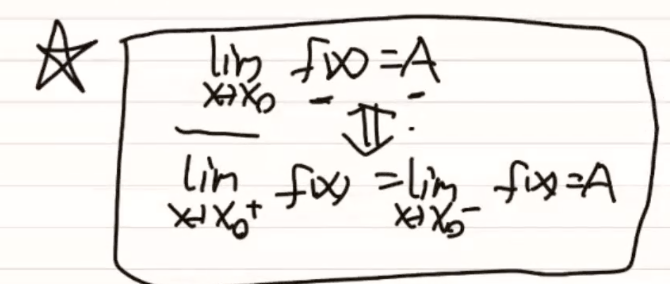 ☆ lim x→x₀ f(x) = A
⇓
lim x→x₀⁺ f(x) = lim x→x₀⁻ f(x) = A